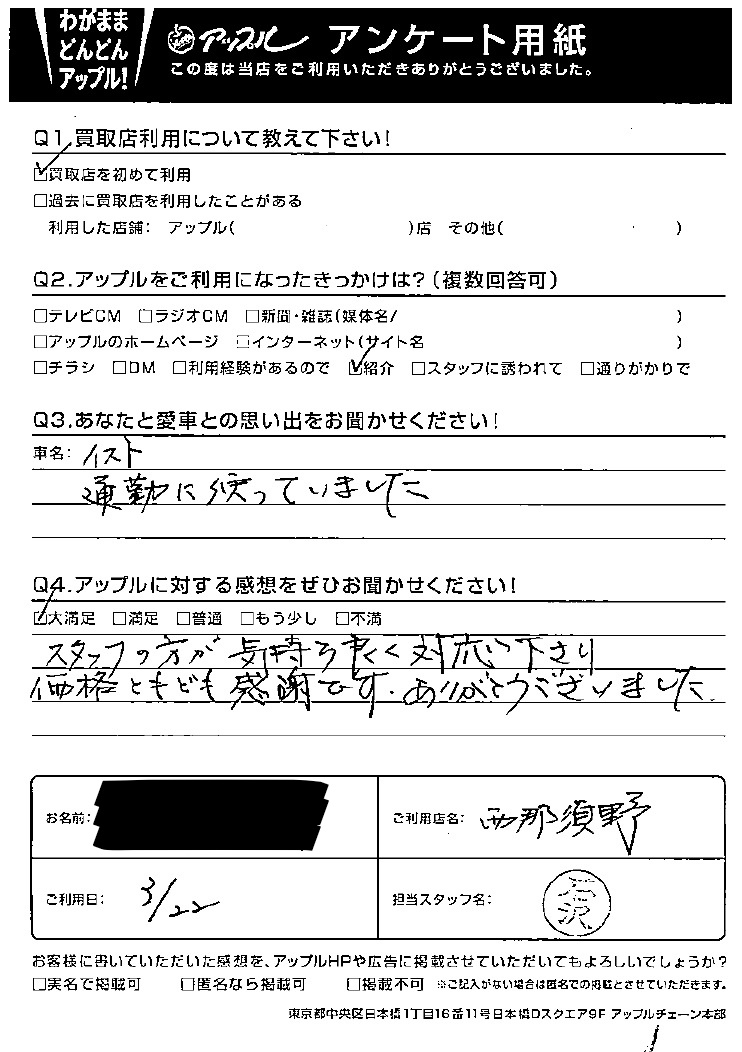 わがまま
どんどん
アップル!
アップル アンケート用紙
この度は当店をご利用いただきありがとうございました。
Q1.買取店利用について教えて下さい!
☑買取店を初めて利用
□過去に買取店を利用したことがある
利用した店舗: アップル( )店 その他( )
Q2.アップルをご利用になったきっかけは?(複数回答可)
□テレビCM □ラジオCM □新聞・雑誌(媒体名/ )
□アップルのホームページ □インターネット(サイト名 )
□チラシ □DM □利用経験があるので ☑紹介 □スタッフに誘われて □通りがかりで
Q3.あなたと愛車との思い出をお聞かせください!
車名: イスト
通勤に使っていました
Q4.アップルに対する感想をぜひお聞かせください!
☑大満足 □満足 □普通 □もう少し □不満
スタッフの方が気持ち良く対応し下さり
価格ともども感謝です.ありがとうございました.
お名前:
ご利用店名: 西那須野
ご利用日: 3/22
担当スタッフ名: 石沢
お客様に書いていただいた感想を、アップルHPや広告に掲載させていただいてもよろしいでしょうか?
□実名で掲載可 □匿名なら掲載可 □掲載不可 ※ご記入がない場合は匿名での掲載とさせていただきます。
東京都中央区日本橋1丁目16番11号日本橋Dスクエア9F アップルチェーン本部